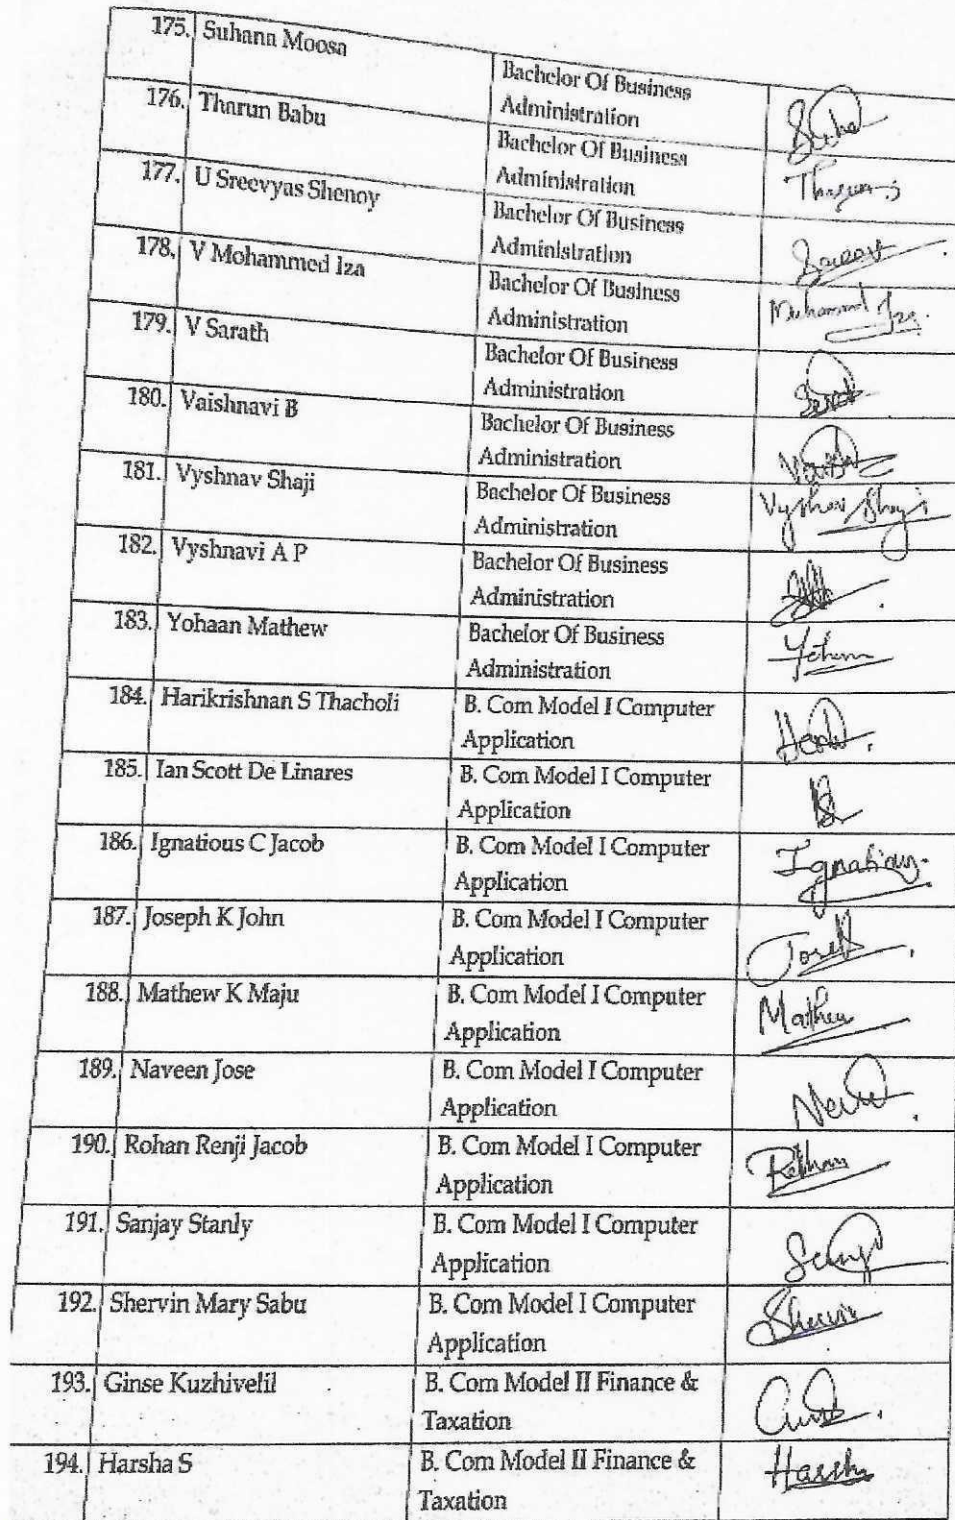 175. Suhana Moosa
Bachelor Of Business
Administration
176. Tharun Babu
Bachelor Of Business
Administration
Tharun
177. U Sreevyas Shenoy
Bachelor Of Business
Administration
178. V Mohammed Iza
Bachelor Of Business
Administration
Muhammed Iza.
179. V Sarath
Bachelor Of Business
Administration
180. Vaishnavi B
Bachelor Of Business
Administration
181. Vyshnav Shaji
Bachelor Of Business
Administration
Vyshnav Shaji
182. Vyshnavi A P
Bachelor Of Business
Administration
183. Yohaan Mathew
Bachelor Of Business
Administration
184. Harikrishnan S Thacholi
B. Com Model I Computer
Application
185. Ian Scott De Linares
B. Com Model I Computer
Application
186. Ignatious C Jacob
B. Com Model I Computer
Application
Ignatious
187. Joseph K John
B. Com Model I Computer
Application
188. Mathew K Maju
B. Com Model I Computer
Application
Mathew
189. Naveen Jose
B. Com Model I Computer
Application
190. Rohan Renji Jacob
B. Com Model I Computer
Application
191. Sanjay Stanly
B. Com Model I Computer
Application
192. Shervin Mary Sabu
B. Com Model I Computer
Application
Shervin
193. Ginse Kuzhivelil
B. Com Model II Finance &
Taxation
194. Harsha S
B. Com Model II Finance &
Taxation
Harsha